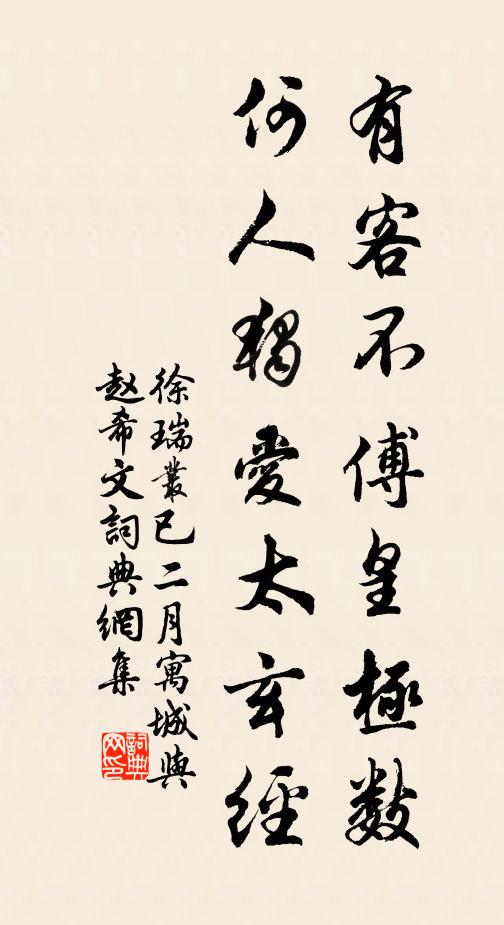 有客不傅皇極數
何人獨愛太玄經
徐瑞叢已二月寓城與
赵希文詞典網集
詞典
网印